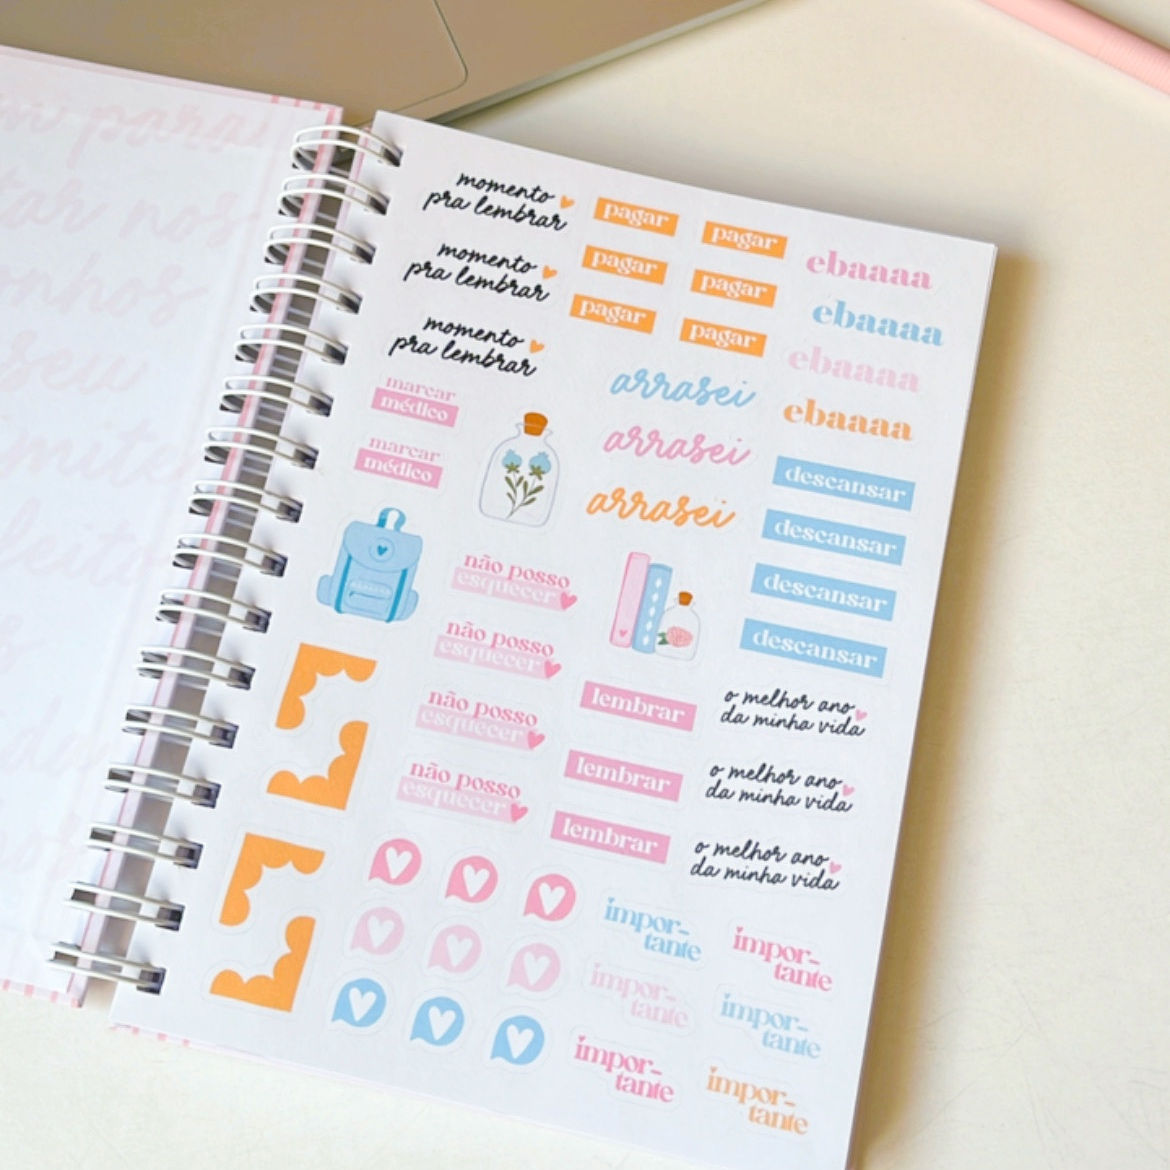 momento
pra lembrar
momento
pra lembrar
momento
pra lembrar
pagar
pagar
pagar
pagar
pagar
pagar
ebaaaa
ebaaaa
ebaaaa
ebaaaa
marcar
médico
marcar
médico
arrasei
arrasei
arrasei
descansar
descansar
descansar
descansar
não posso
esquecer
não posso
esquecer
não posso
esquecer
não posso
esquecer
lembrar
lembrar
lembrar
o melhor ano
da minha vida
o melhor ano
da minha vida
o melhor ano
da minha vida
impor-
tante
impor-
tante
impor-
tante
impor-
tante
impor-
tante
impor-
tante